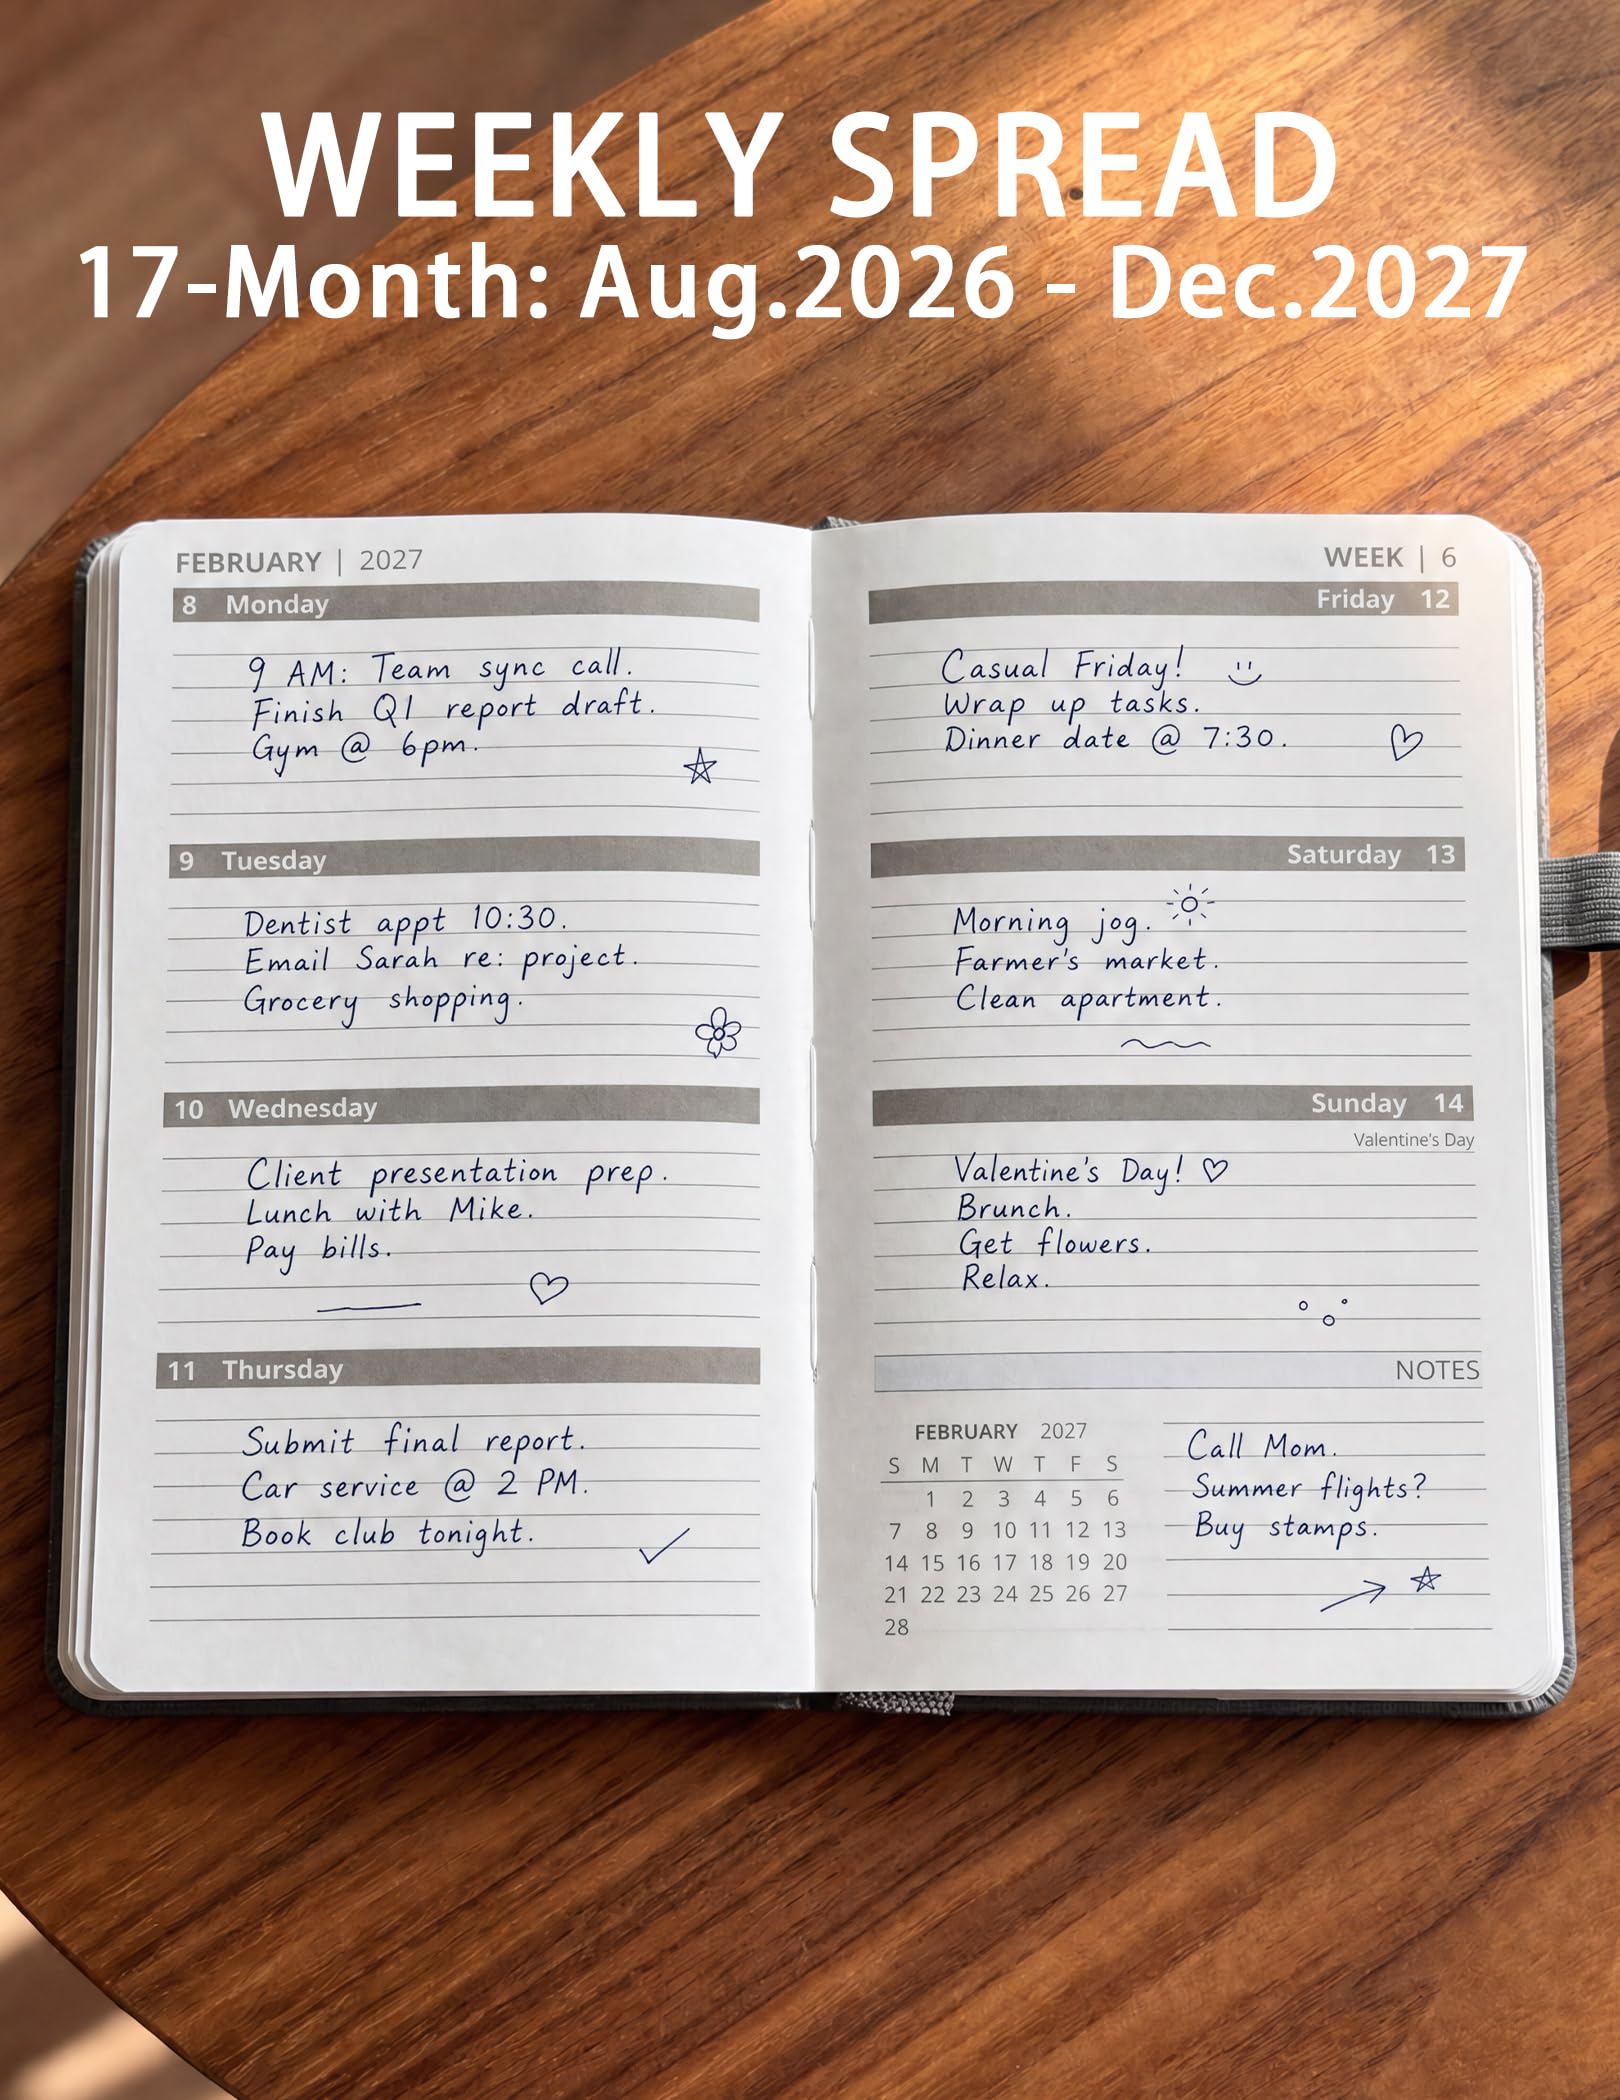 WEEKLY SPREAD
17-Month: Aug.2026 - Dec.2027
FEBRUARY | 2027
8 Monday
9 AM: Team sync call.
Finish Q1 report draft.
Gym @ 6pm.
9 Tuesday
Dentist appt 10:30.
Email Sarah re: project.
Grocery shopping.
10 Wednesday
Client presentation prep.
Lunch with Mike.
Pay bills.
11 Thursday
Submit final report.
Car service @ 2 PM.
Book club tonight.
WEEK | 6
Friday 12
Casual Friday!
Wrap up tasks.
Dinner date @ 7:30.
Saturday 13
Morning jog.
Farmer's market.
Clean apartment.
Sunday 14
Valentine's Day
Valentine's Day!
Brunch.
Get flowers.
Relax.
NOTES
FEBRUARY 2027
S M T W T F S
1 2 3 4 5 6
7 8 9 10 11 12 13
14 15 16 17 18 19 20
21 22 23 24 25 26 27
28
Call Mom.
Summer flights?
Buy stamps.